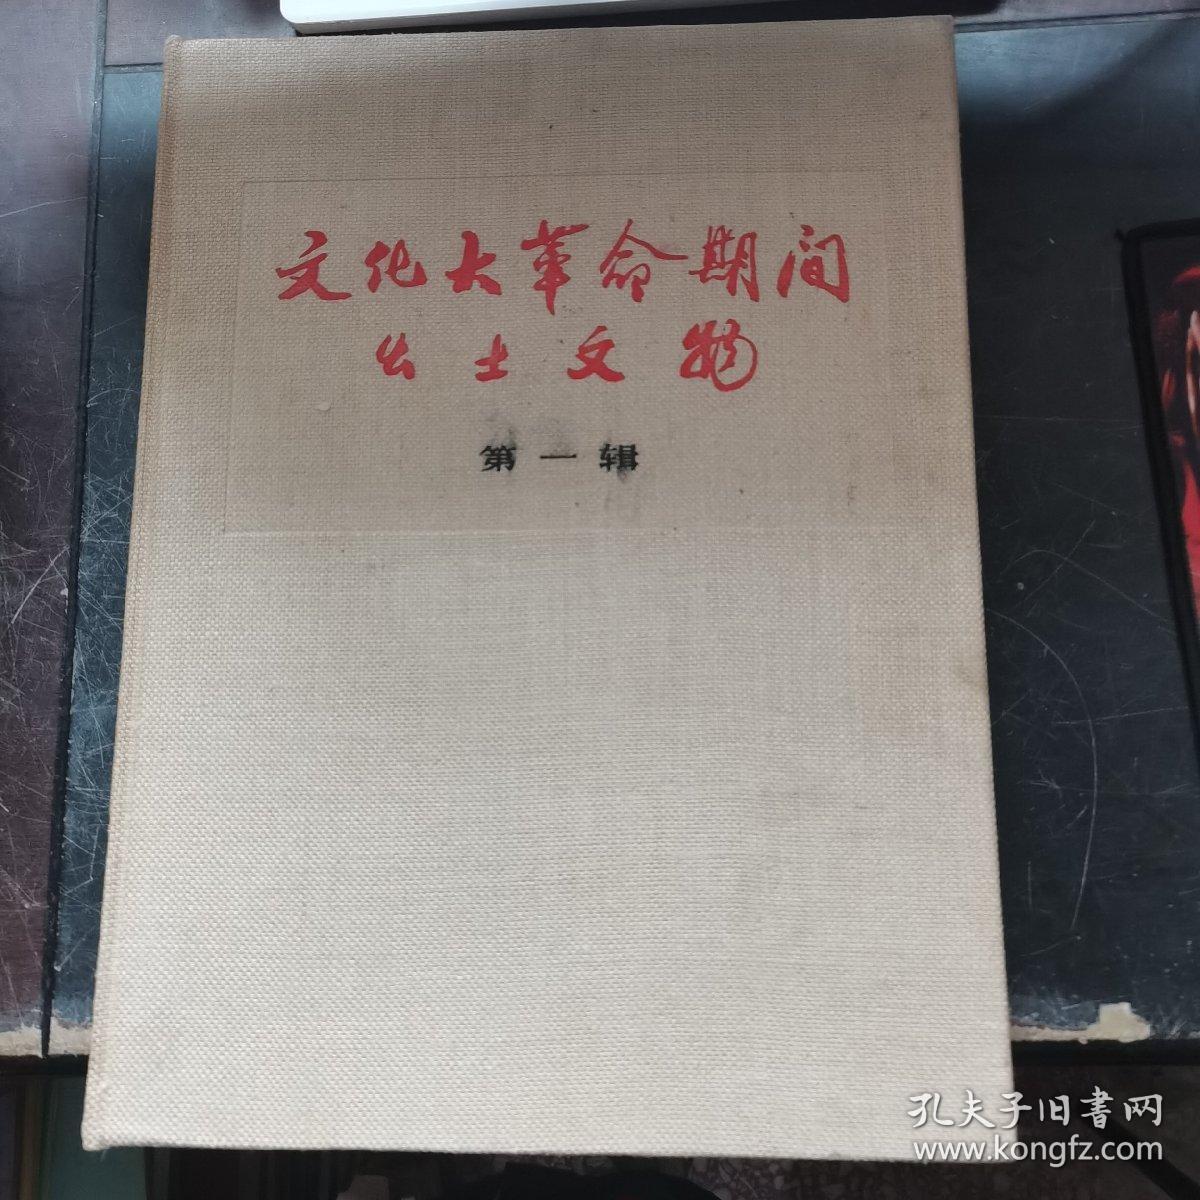 文化大革命期间
出土文物
第一辑
孔夫子旧书网
www.kongfz.com